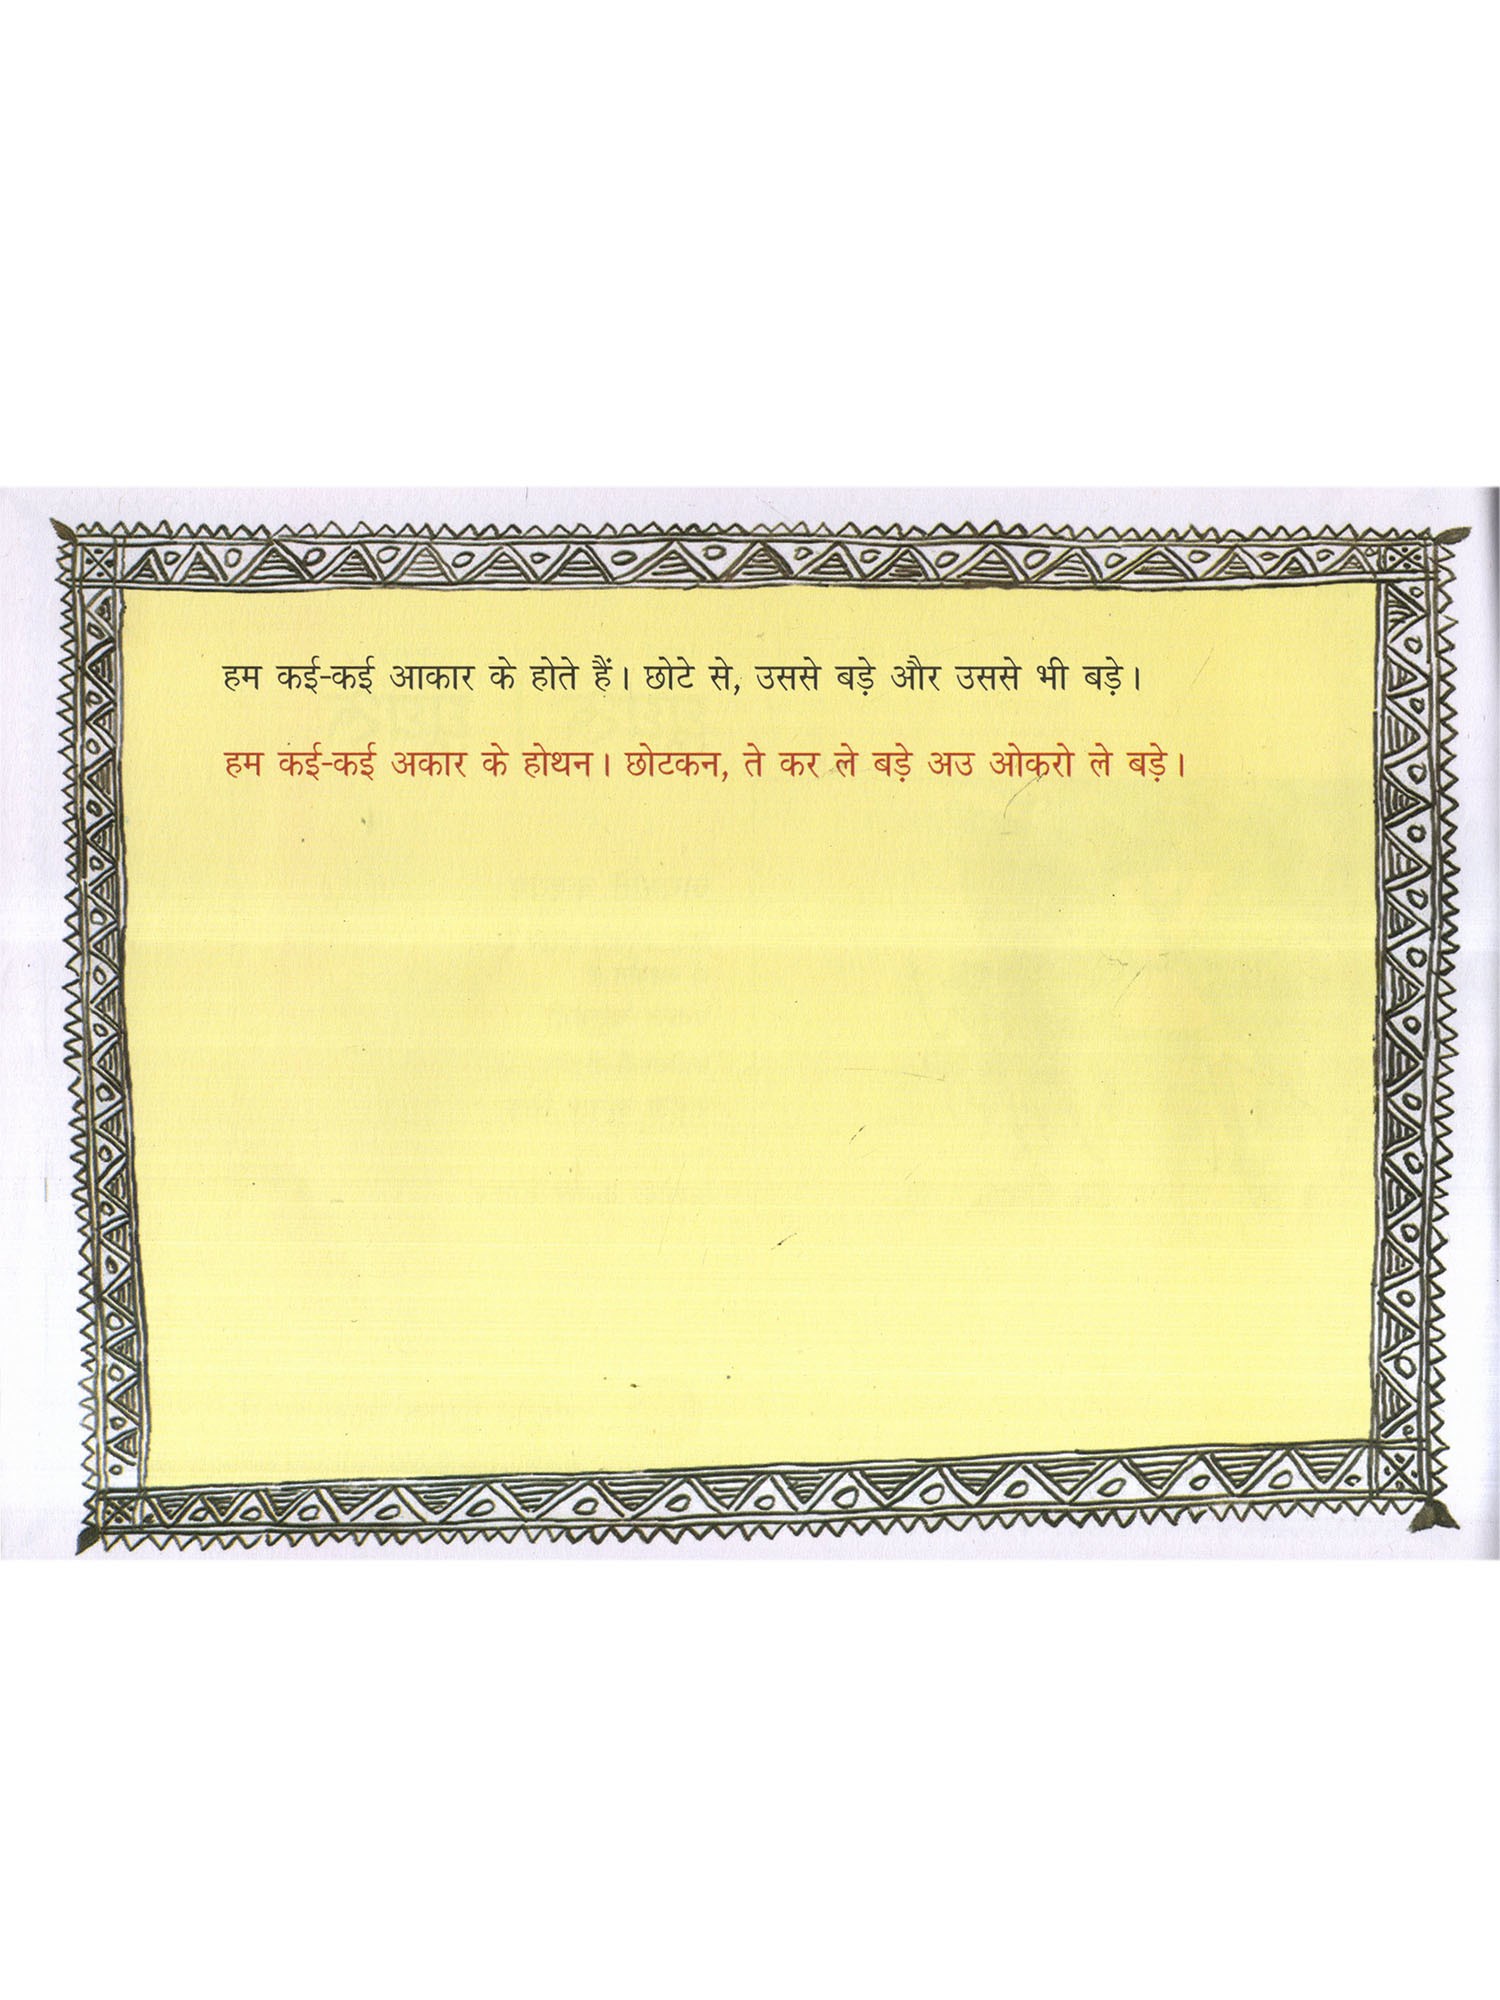 हम कई-कई आकार के होते हैं। छोटे से, उससे बड़े और उससे भी बड़े।
हम कई-कई अकार के होथन। छोटकन, ते कर ले बड़े अउ ओकरो ले बड़े।